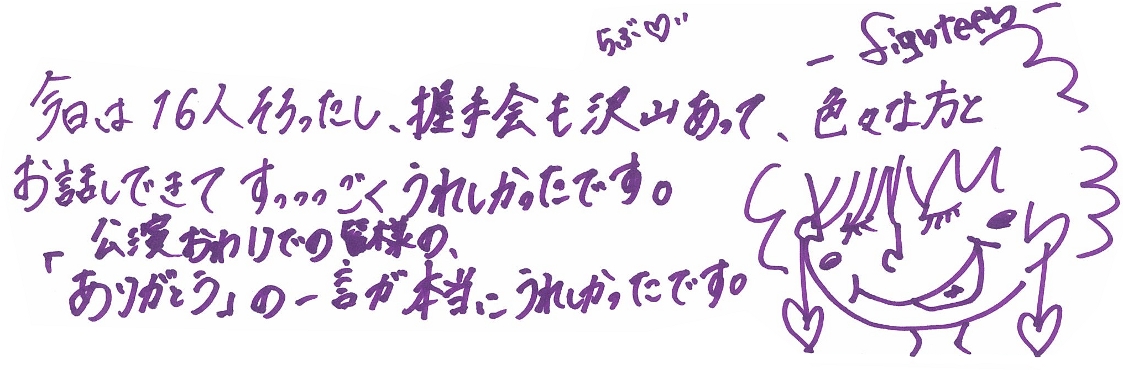 らぶ♡
今日は16人そろったし、握手会も沢山あって、色々な方と
お話しできてすっっっごくうれしかったです。
公演おわりでの皆様の、
「ありがとう」の一言が本当にうれしかったです。